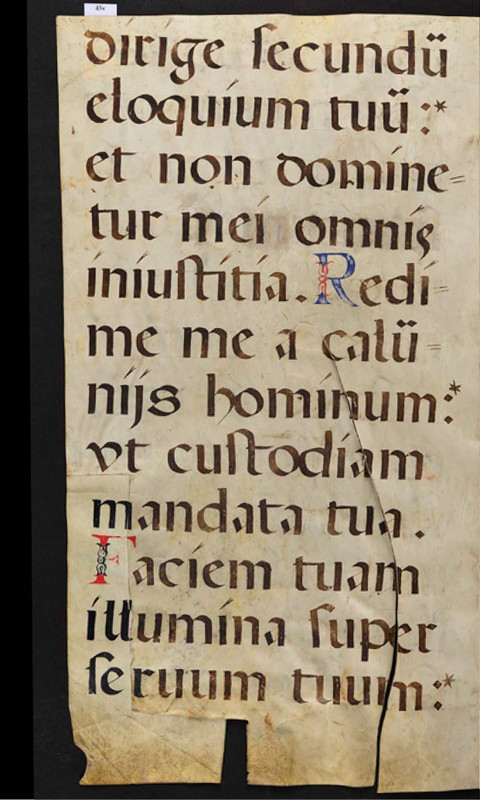 dirige ſecundū
eloquium tuū :*
et non domine=
tur mei omnis
iniuſtitia. Redi=
me me a calū=
nijs hominum:*
vt cuſtodiam
mandata tua.
Faciem tuam
illumina ſuper
ſeruum tuum:*